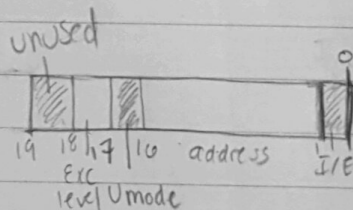 unused
0
19 18 17 16 address 1 I/E
Exc
level Umode